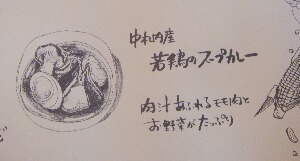 中札内産
若鶏のスープカレー
肉汁あふれるモモ肉と
お野菜がたっぷり